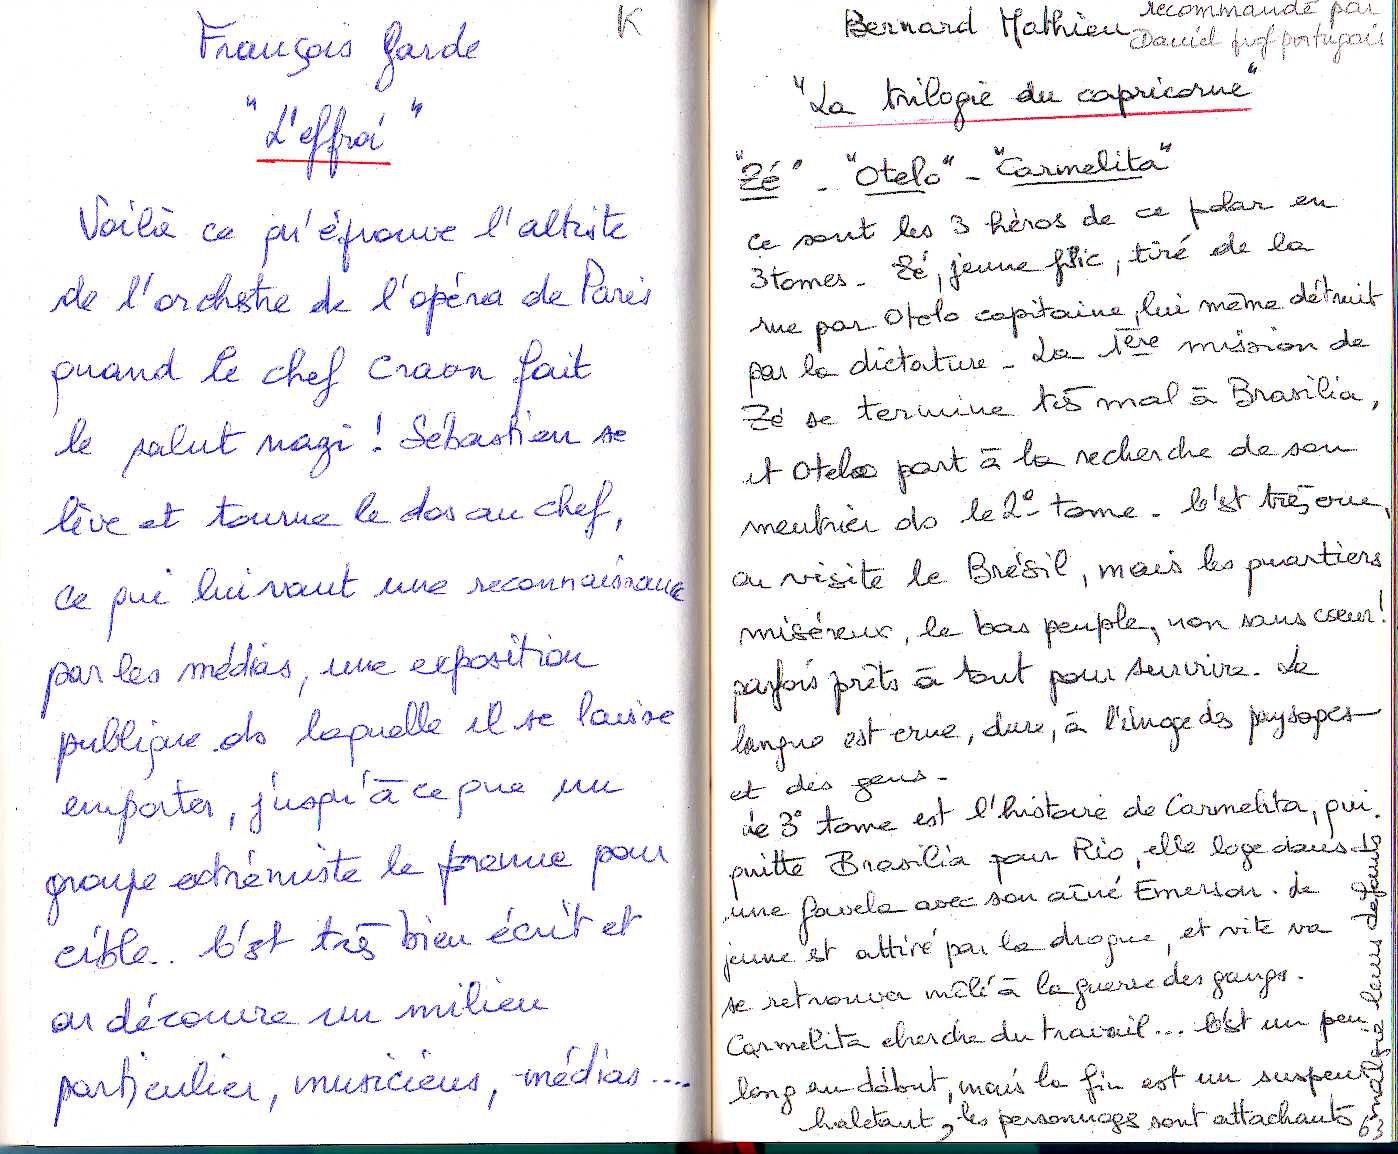 K
François Garde
"L'effroi"
Voilà ce qu'éprouve l'altiste
de l'orchestre de l'opéra de Paris
quand le chef Craon fait
le salut nazi ! Sébastien se
lève et tourne le dos au chef,
ce qui lui vaut une reconnaissance
par les médias, une exposition
publique ds laquelle il se laisse
emporter, jusqu'à ce que un
groupe extrémiste le prenne pour
cible.. C'est très bien écrit et
on découvre un milieu
particulier, musiciens, médias....
Bernard Mathieu recommandé par
Daniel prof portugais
"La trilogie du capricorne"
"Zé" - "Otelo" - "Carmelita"
ce sont les 3 héros de ce polar en
3 tomes - Zé, jeune flic, tiré de la
rue par Otelo capitaine, lui même détruit
par la dictature - La 1ère mission de
Zé se termine très mal à Brasilia,
et Otelo part à la recherche de son
meutrier ds le 2° tome - C'est très cru,
on visite le Brésil, mais les quartiers
miséreux, le bas peuple, non sans cœur!
parfois prêts à tout pour survivre. La
langue est crue, dure, à l'image des paysages
et des gens -
Le 3° tome est l'histoire de Carmelita, qui
quitte Brasilia pour Rio, elle loge dans
une favela avec son aîné Emerson. Le
jeune est attiré par la drogue, et vite va
se retrouver mêlé à la guerre des gangs.
Carmelita cherche du travail... C'est un peu
long au début, mais la fin est un suspens
haletant, les personnages sont attachants
malgré leurs défauts
63